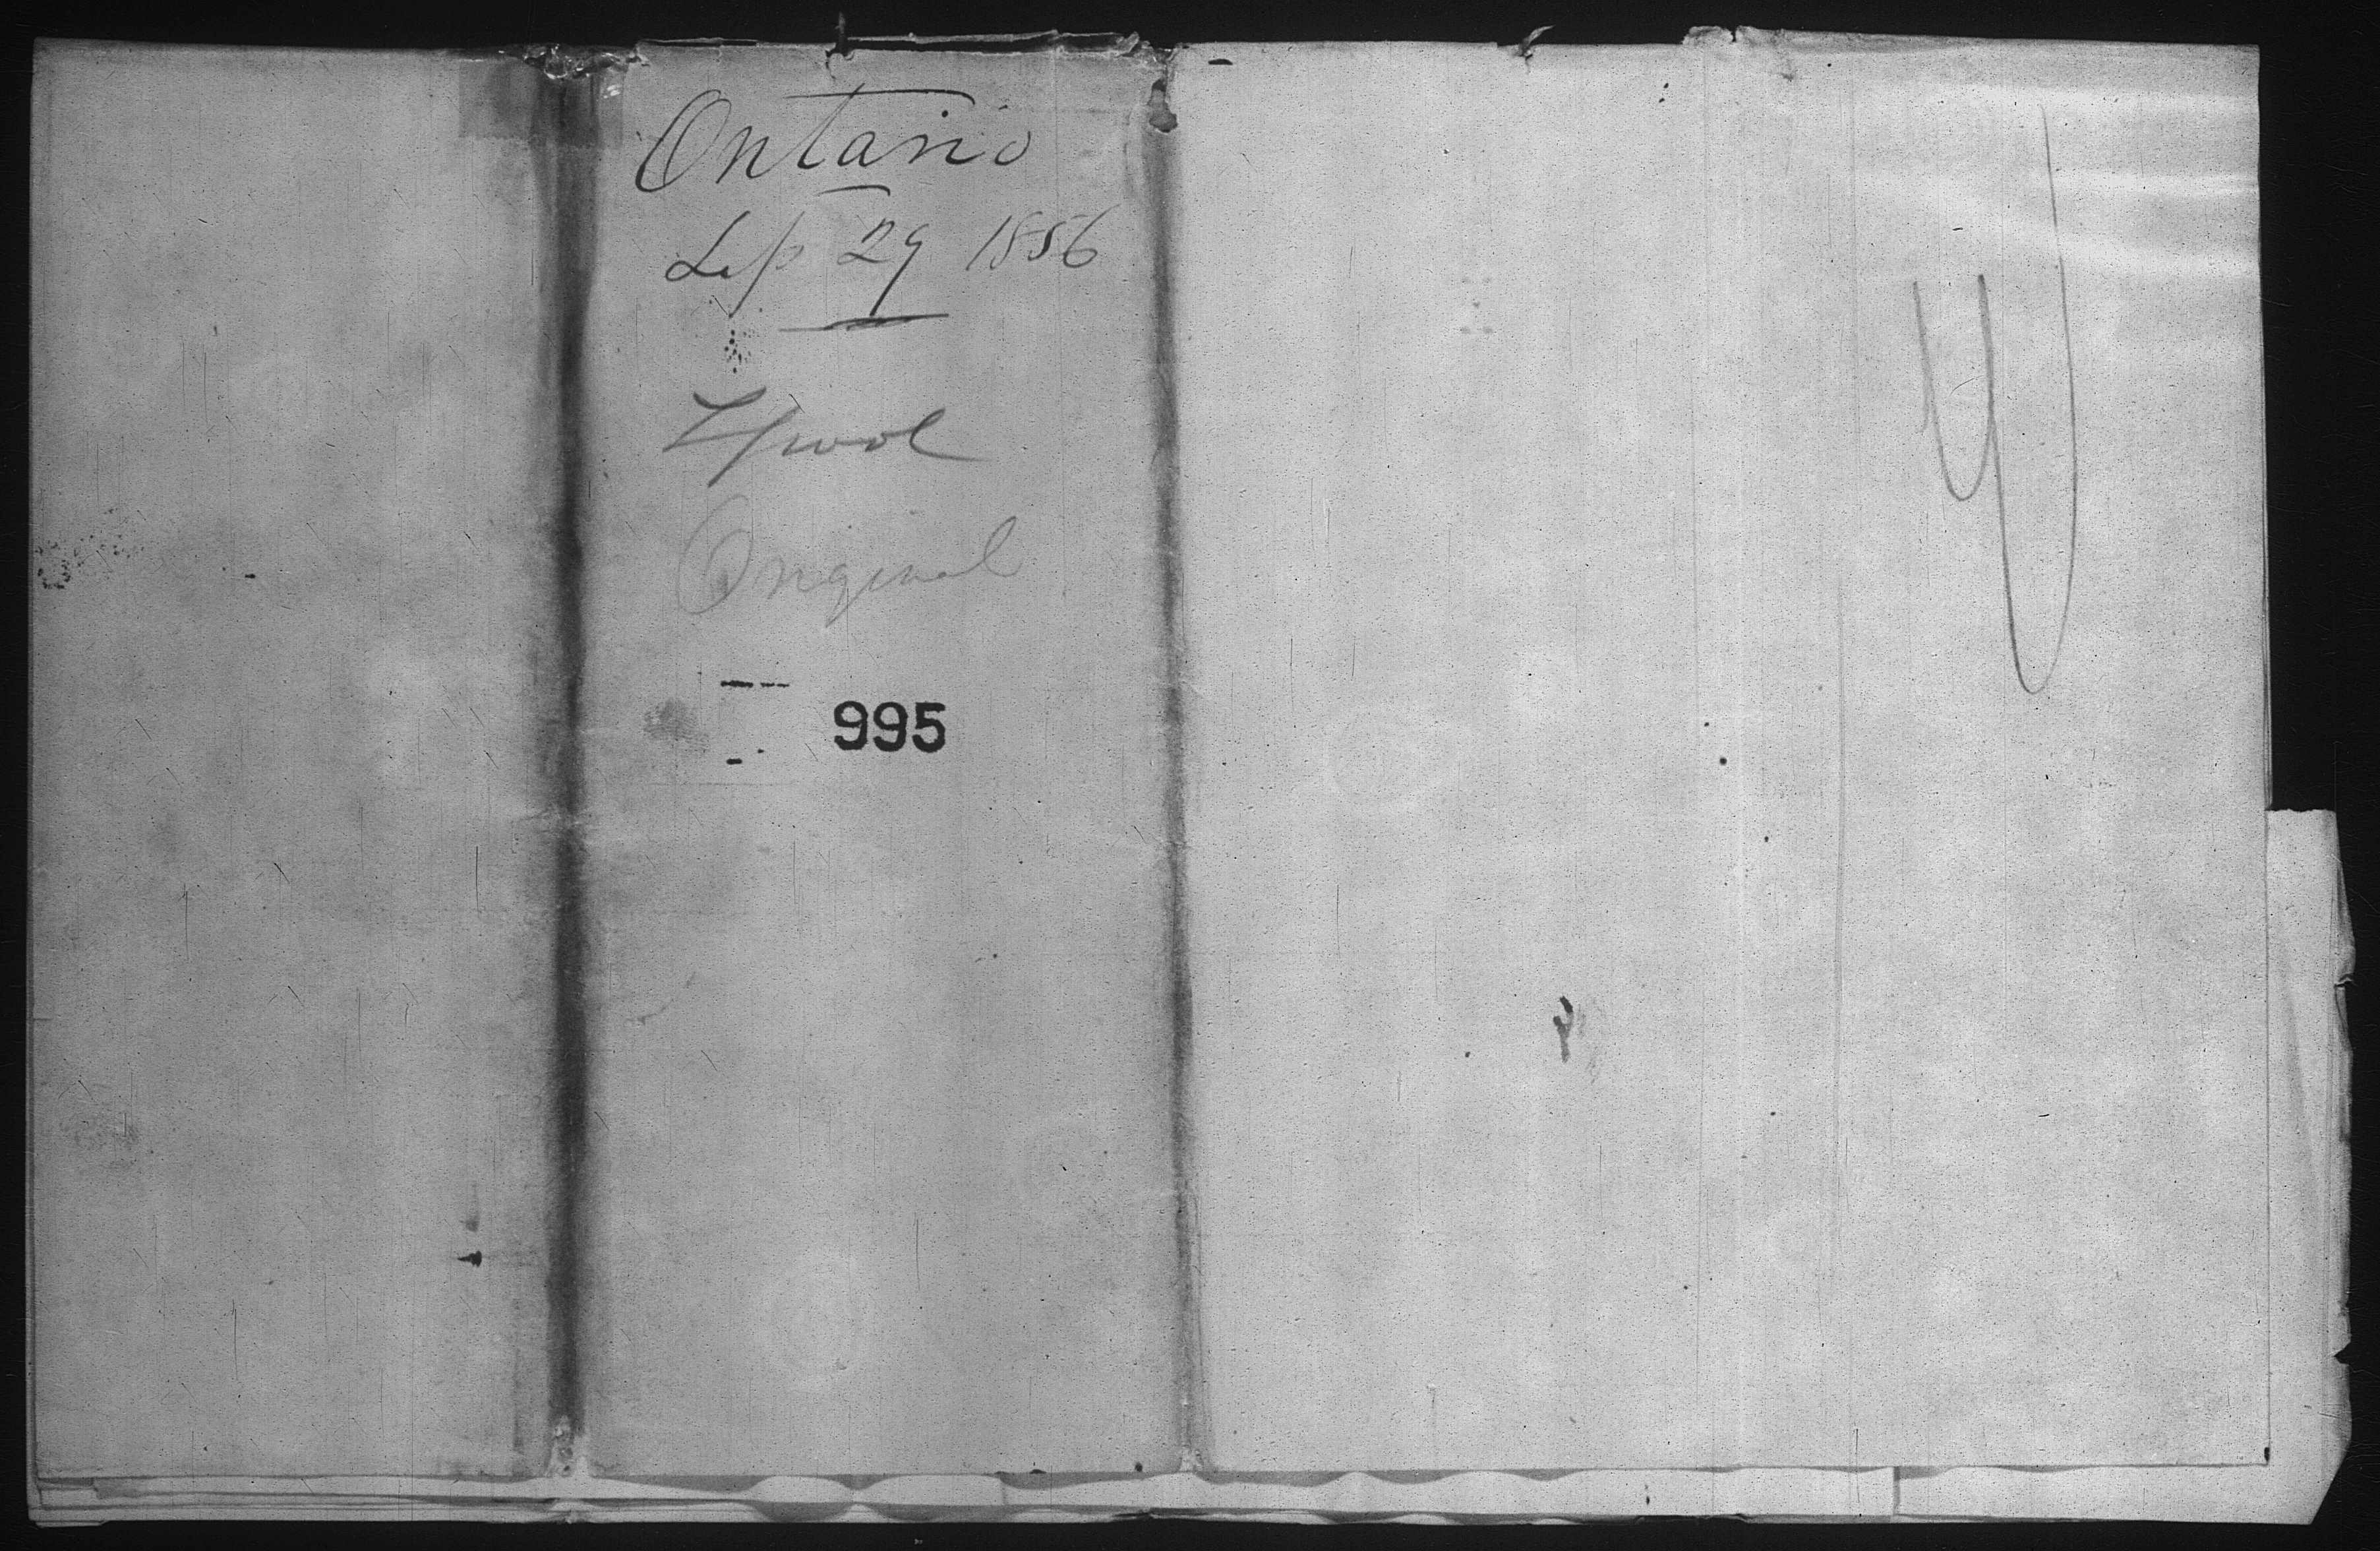 Ontario
Sep 29 1856
L/pool
Original
995